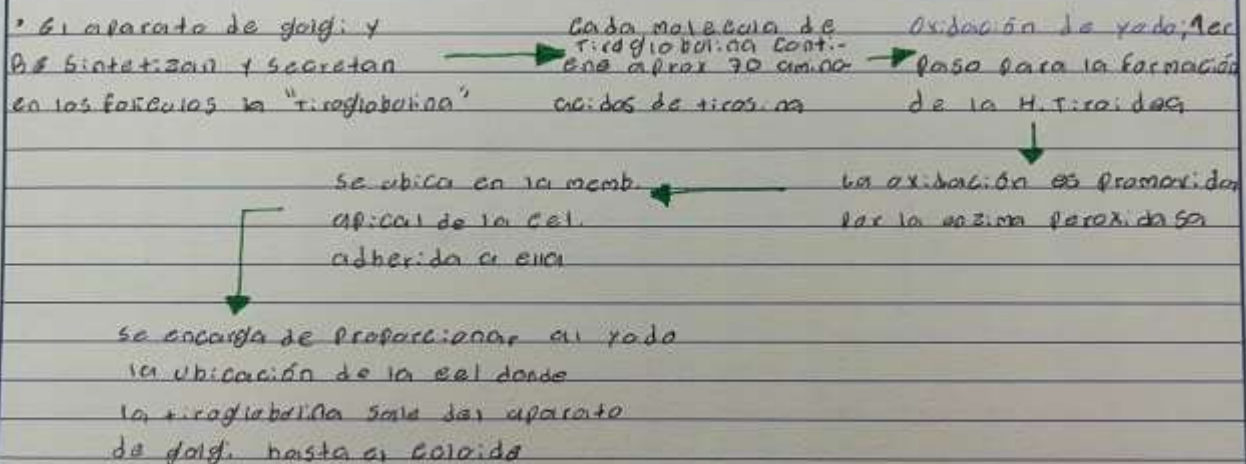 • El aparato de golgi y
RE Sintetizan y secretan
en los foliculos la "tiroglobulina"
Cada molecula de
tiroglobulina conti-
ene aprox 70 amino-
acidos de tirosina
Oxidación de yodo; 1er
paso para la formación
de la H. Tiroidea
La oxidación es promovida
por la enzima peroxidasa
Se ubica en la memb.
apical de la cel.
adherida a ella
Se encarga de proporcionar al yodo
la ubicación de la cel donde
la tiroglobulina sale del aparato
de golgi hasta el coloide